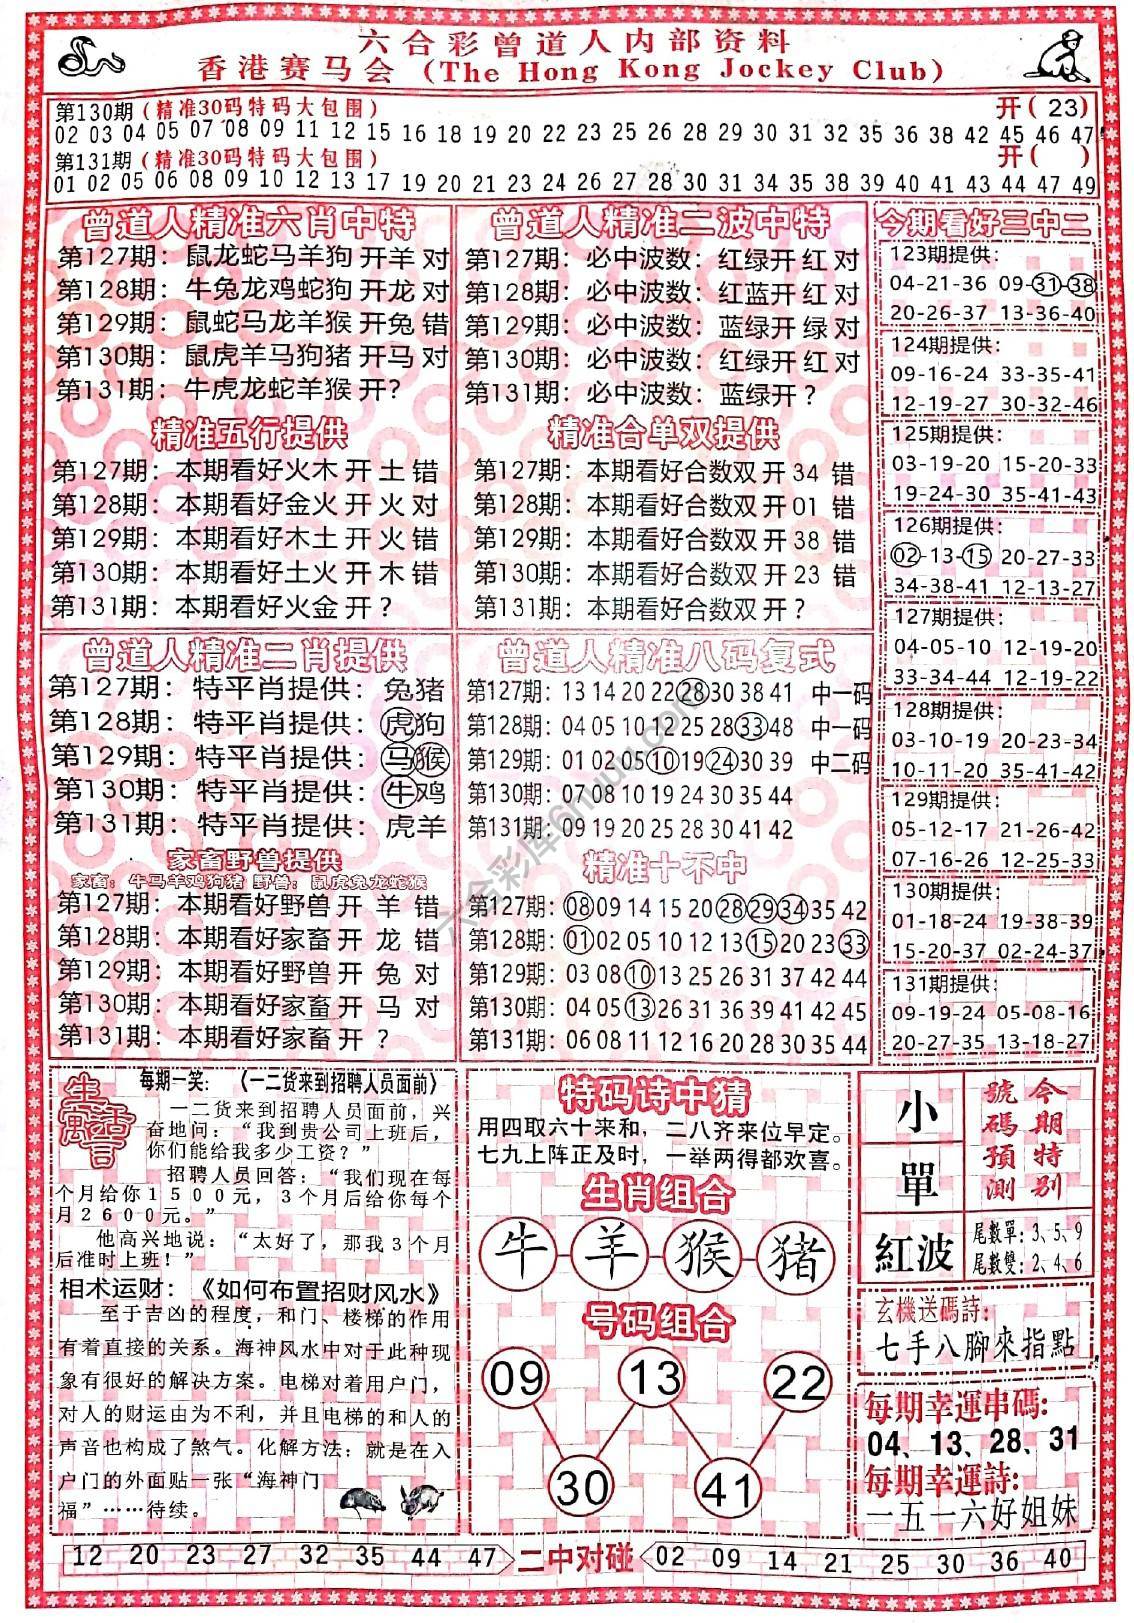 六合彩曾道人内部资料
香港赛马会（The Hong Kong Jockey Club）
第130期(精准30码特码大包围) 开(23)
02 03 04 05 07 08 09 11 12 15 16 18 19 20 22 23 25 26 28 29 30 31 32 35 36 38 42 45 46 47
第131期(精准30码特码大包围) 开( )
01 02 05 06 08 09 10 12 13 17 19 20 21 23 24 26 27 28 30 31 34 35 38 39 40 41 43 44 47 49
曾道人精准六肖中特
第127期：鼠龙蛇马羊狗 开羊 对
第128期：牛兔龙鸡蛇狗 开龙 对
第129期：鼠蛇马龙羊猴 开兔 错
第130期：鼠虎羊马狗猪 开马 对
第131期：牛虎龙蛇羊猴 开？
精准五行提供
第127期：本期看好火木 开 土 错
第128期：本期看好金火 开 火 对
第129期：本期看好木土 开 火 错
第130期：本期看好土火 开 木 错
第131期：本期看好火金 开 ？
曾道人精准二波中特
第127期：必中波数：红绿开 红 对
第128期：必中波数：红蓝开 红 对
第129期：必中波数：蓝绿开 绿 对
第130期：必中波数：红绿开 红 对
第131期：必中波数：蓝绿开？
精准合单双提供
第127期：本期看好合数双 开 34 错
第128期：本期看好合数双 开 01 错
第129期：本期看好合数双 开 38 错
第130期：本期看好合数双 开 23 错
第131期：本期看好合数双 开？
今期看好三中二
123期提供：
04-21-36 09-31-38
20-26-37 13-36-40
124期提供：
09-16-24 33-35-41
12-19-27 30-32-46
125期提供：
03-19-20 15-20-33
19-24-30 35-41-43
126期提供：
02-13-15 20-27-33
34-38-41 12-13-27
127期提供：
04-05-10 12-19-20
33-34-44 12-19-22
128期提供：
03-10-19 20-23-34
10-11-20 35-41-42
129期提供：
05-12-17 21-26-42
07-16-26 12-28-33
130期提供：
01-18-24 19-38-39
15-20-37 02-24-37
131期提供：
09-19-24 05-08-16
20-27-35 13-18-27
曾道人精准二肖提供
第127期：特平肖提供：兔猪
第128期：特平肖提供：虎狗
第129期：特平肖提供：马猴
第130期：特平肖提供：牛鸡
第131期：特平肖提供：虎羊
家畜野兽提供
家畜：牛马羊鸡狗猪 野兽：鼠虎兔龙蛇猴
第127期：本期看好野兽 开 羊 错
第128期：本期看好家畜 开 龙 错
第129期：本期看好野兽 开 兔 对
第130期：本期看好家畜 开 马 对
第131期：本期看好家畜 开 ？
曾道人精准八码复式
第127期：13 14 20 22 28 30 38 41 中一码
第128期：04 05 10 12 25 28 33 48 中一码
第129期：01 02 05 10 19 24 30 39 中二码
第130期：07 08 10 19 24 30 35 44
第131期：09 19 20 25 28 30 41 42
精准十不中
第127期：08 09 14 15 20 28 29 34 35 42
第128期：01 02 05 10 12 13 15 20 23 33
第129期：03 08 10 13 25 26 31 37 42 44
第130期：04 05 13 26 31 36 39 41 42 45
第131期：06 08 11 12 16 20 28 30 35 44
六合彩库6huu.com
生活寓言
每期一笑：《一二货来到招聘人员面前》
一二货来到招聘人员面前，兴
奋地问：“我到贵公司上班后，
你们能给我多少工资？”
招聘人员回答：“我们现在每
个月给你1500元，3个月后给你每个
月2600元。”
他高兴地说：“太好了，那我3个月
后准时上班！”
相术运财：《如何布置招财风水》
至于吉凶的程度，和门、楼梯的作用
有着直接的关系。海神风水中对于此种现
象有很好的解决方案。电梯对着用户门，
对人的财运由为不利，并且电梯的和人的
声音也构成了煞气。化解方法：就是在入
户门的外面贴一张“海神门
福”……待续。
特码诗中猜
用四取六十来和，二八齐来位早定。
七九上阵正及时，一举两得都欢喜。
生肖组合
牛 羊 猴 猪
号码组合
09 13 22
30 41
小
單
紅波
今期特别
號碼預測
尾數單：3、5、9
尾數雙：2、4、6
玄機送碼詩：
七手八腳來指點
每期幸運串碼：
04、13、28、31
每期幸運詩：
一五一六好姐妹
12 20 23 27 32 35 44 47 二中对碰 02 09 14 21 25 30 36 40